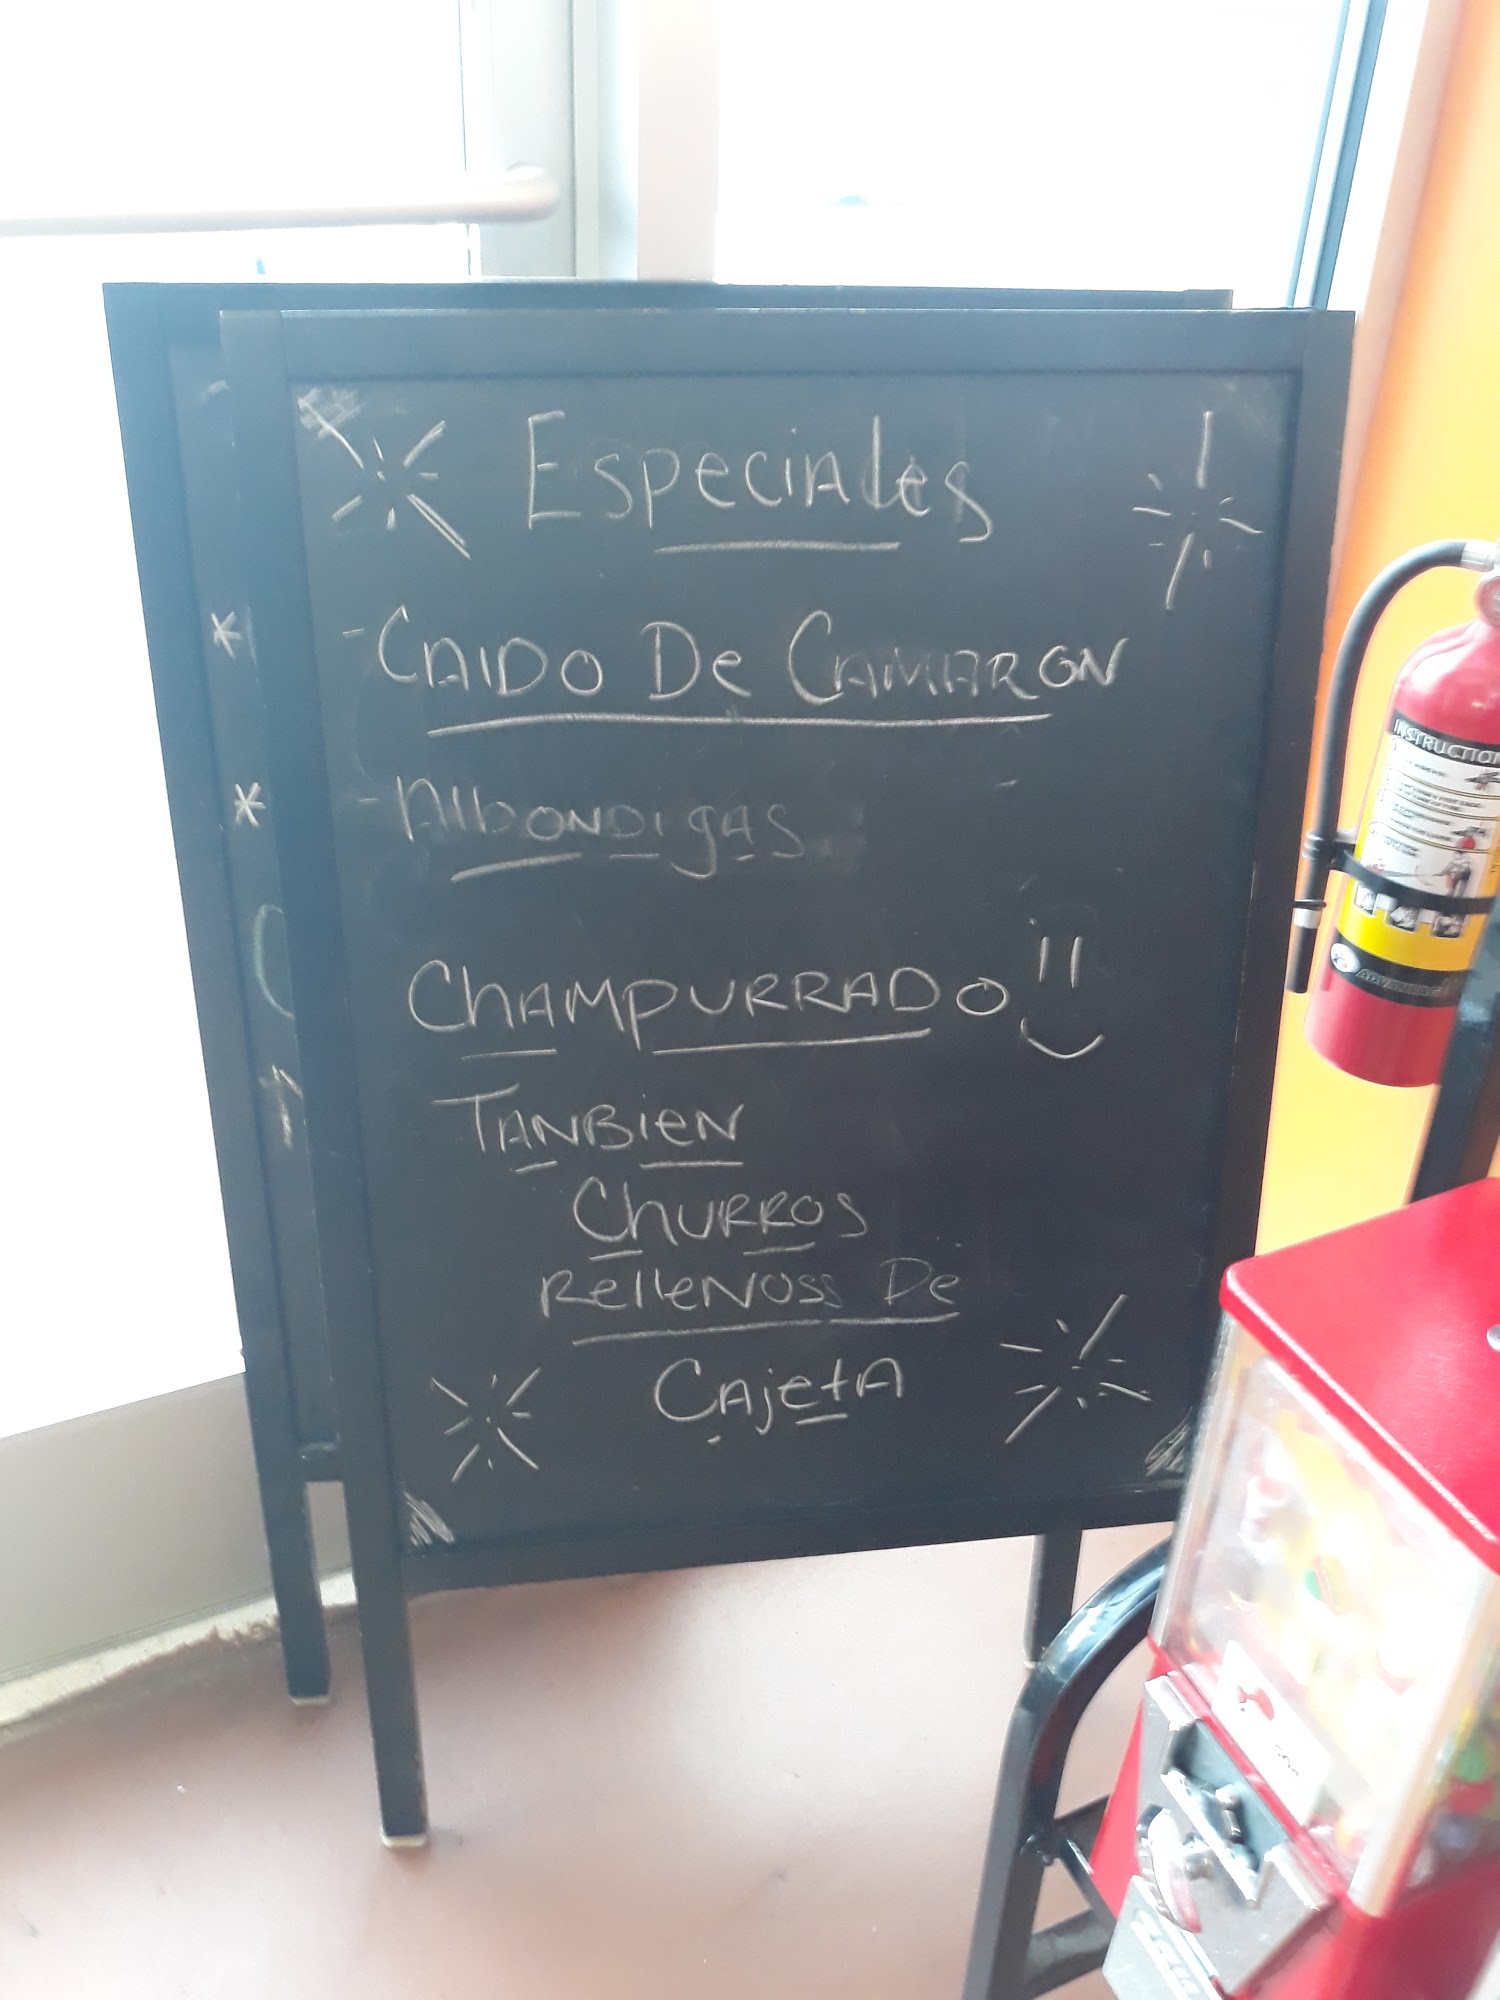 Especiales
-Caldo De Camaron
-Albondigas
Champurrado !!
Tanbien
Churros
Rellenoss De
Cajeta
INSTRUCTION